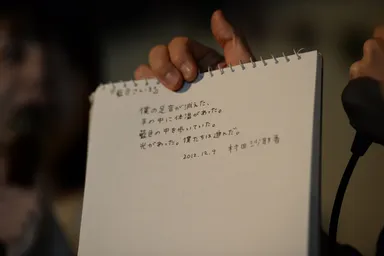 僕の足音が消えた、
手の中に体温があった。
藍色の中を歩いていた。
光があった。僕たちは遊んだ。
2012.12.9 村田